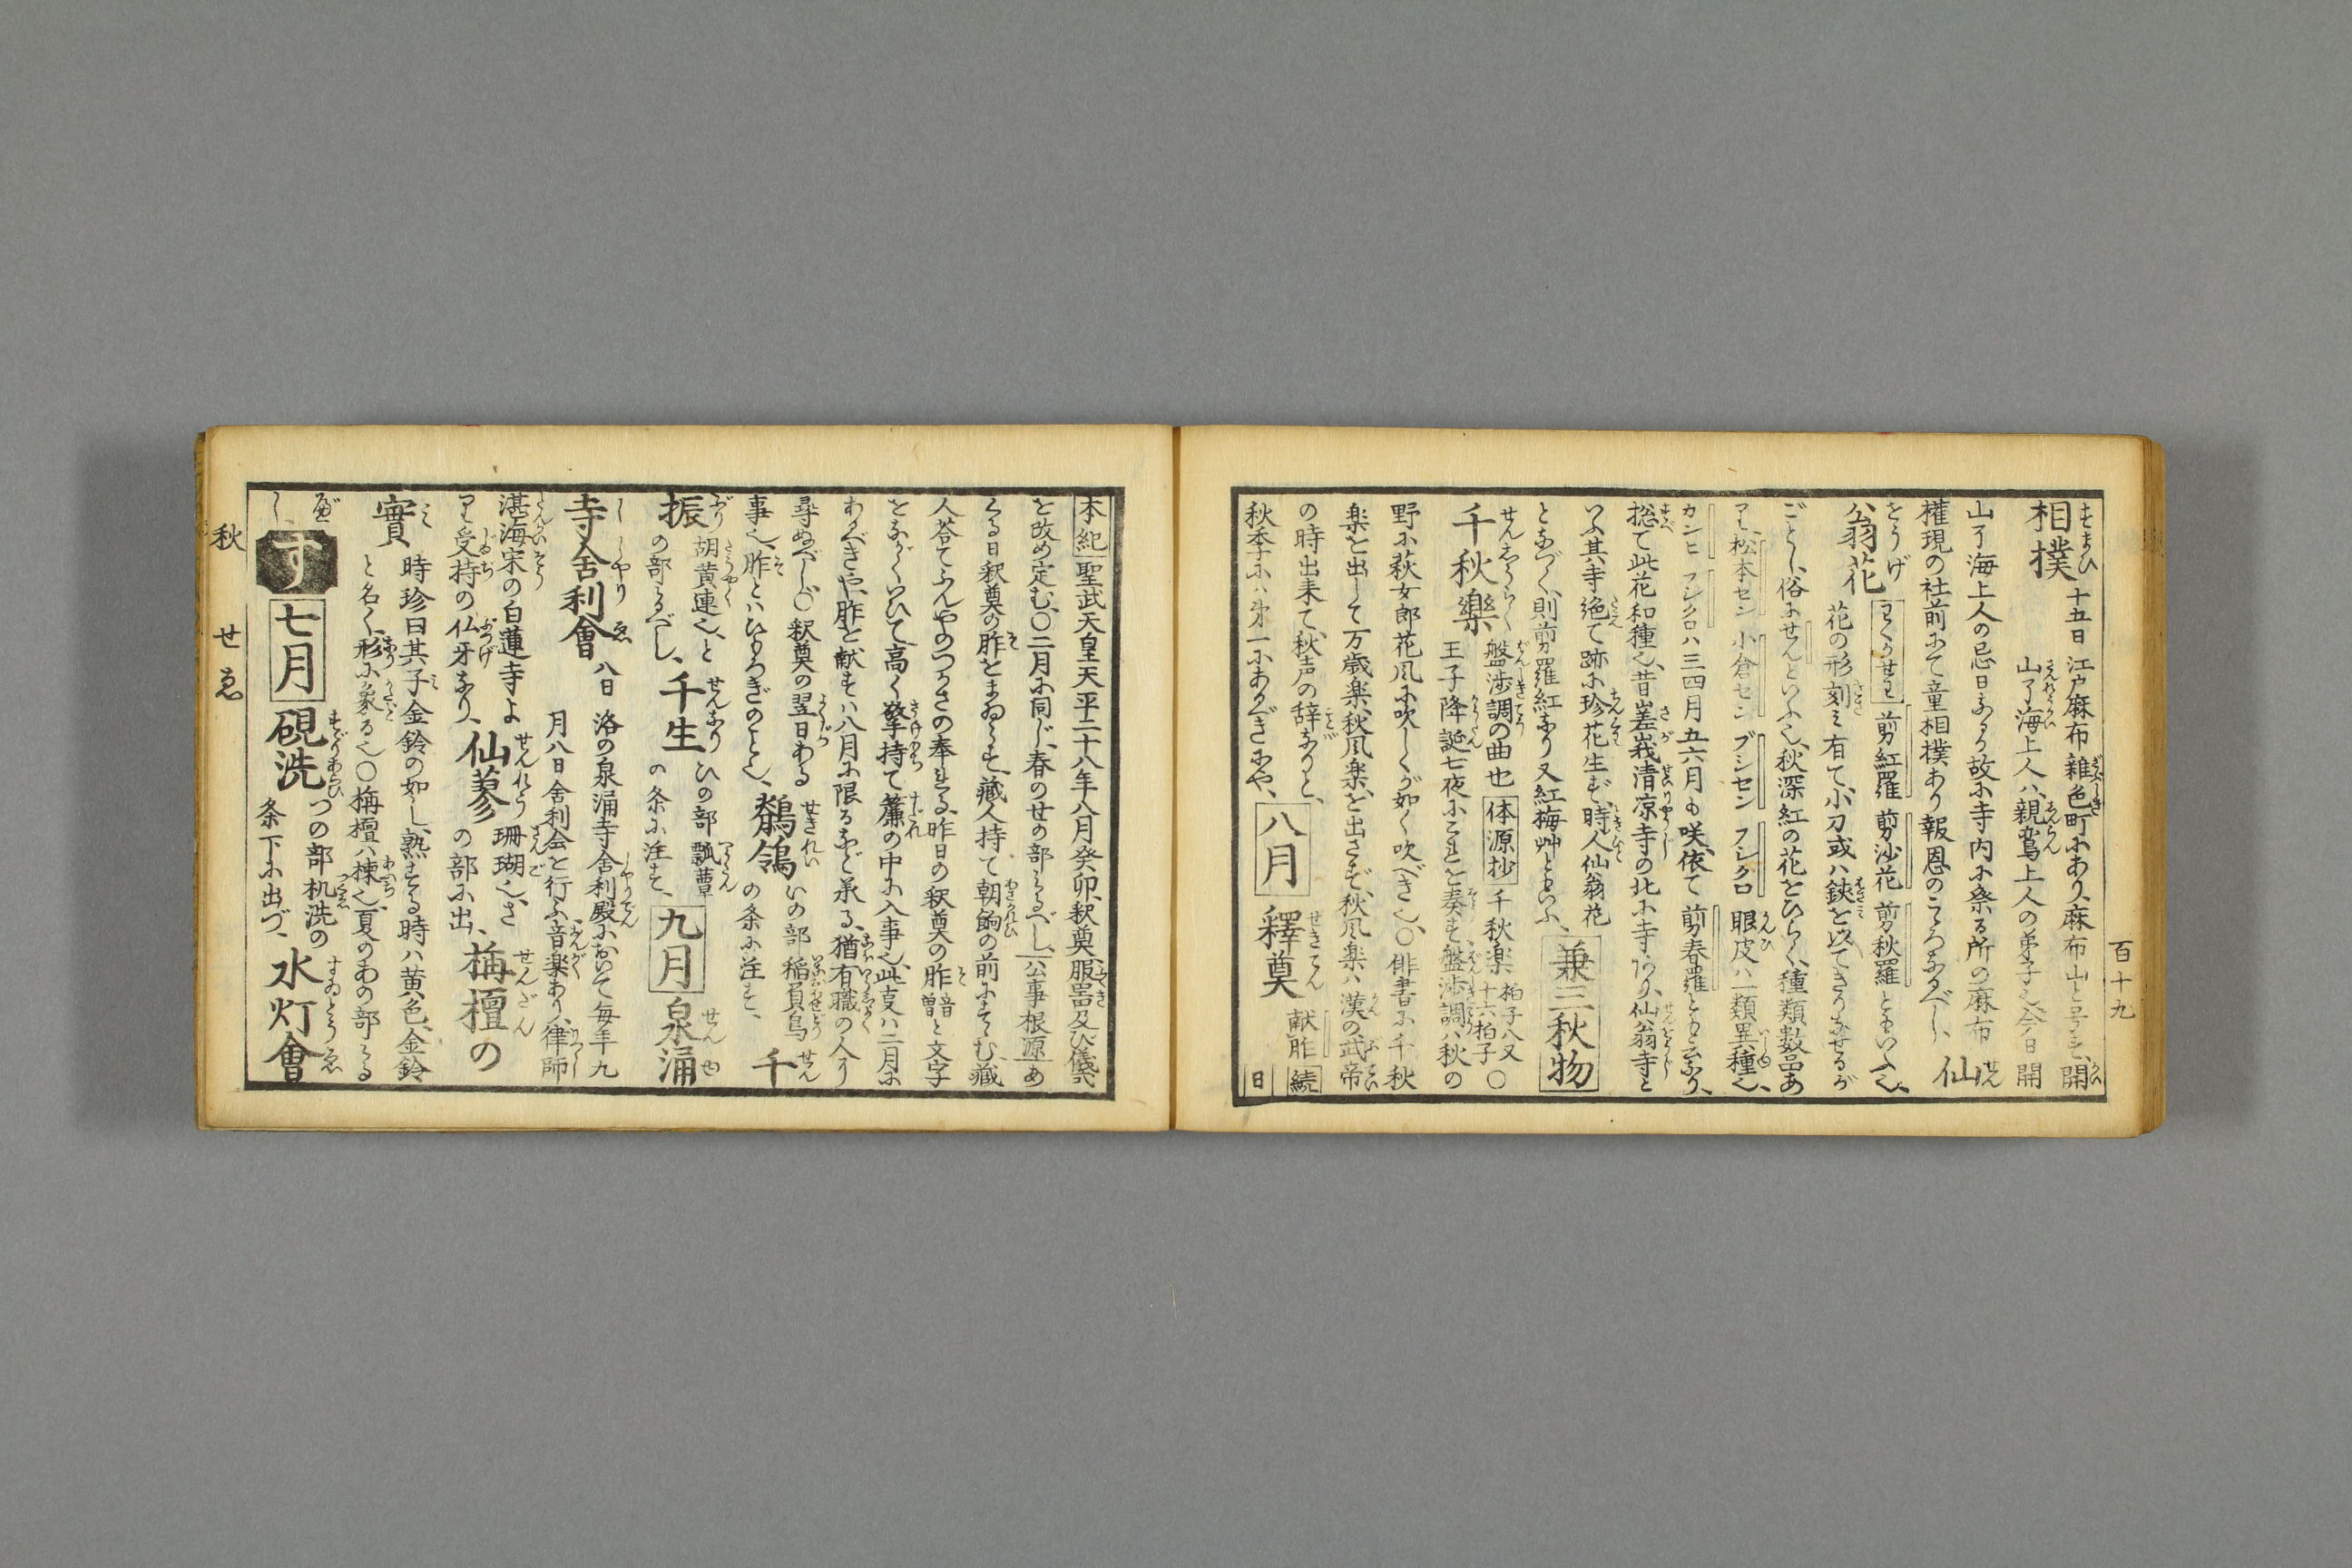 百十九
相撲 十五日 江戸麻布雑色町にあり、麻布山と号す、開
山了海上人ハ、親鸞上人の弟子也、今日開
山了海上人の忌日なる故に寺内に祭る所の麻布
権現の社前にて童相撲あり報恩のこゝろなるべし、 仙
翁花 剪紅羅 剪沙花 剪秋羅ともいふ也、
花の形刻ミ有て、小刀或ハ鋏を以てきりなせるが
ごとし、俗にせんといふ也、秋深紅の花をひらく、種類数品あ
り、松本セン 小倉セン ブシセン フシクロ 眼皮ハ一類異種也、
カンヒ フシクロハ三四月五六月も咲、依て剪春羅とも云なり、
捴て此花和種也、昔嵯峩清凉寺の北に寺あり、仙翁寺と
いふ其寺絶て跡に珍花生ず、時人仙翁花
となづく、則剪羅紅なり又紅梅艸ともいふ、 兼三秋物
千秋樂 盤渉調の曲也 体源抄 千秋楽 拍子八又十六拍子 〇
王子降誕七夜にこれを奏す、盤渉調ハ秋の
野に萩女郎花風に吹しくが如く吹べき也、〇俳書に千秋
楽を出して万歳楽、秋風楽、を出さず、秋風楽ハ漢の武帝
の時出来て、秋声の辞なりと、
秋季にハ第一にあるべきにや、 八月 釋奠 献胙 続日
本紀 聖武天皇天平二十八年八月癸卯、釈奠、服器及び儀式
を改め定む、〇二月に同じ、春のせの部みるべし、公事根源 あ
くる日釈奠の胙をまゐらす、蔵人持て朝餉の前にすゝむ、蔵
人答てふんやのつかさの奉れる、昨日の釈奠の胙 音曽 と文字
をながくいひて、高く擎持て簾の中に入事也、此支ハ二月に
あるべきや、胙を献ずハ八月に限るなど承る、猶有職の人に
尋ぬべし、〇釈奠の翌日ある
事也、胙とハひもろぎのこと也、 鶺鴒 いの部稲負鳥の条に注す、 千
振 胡黄連也、との部みるべし、 千生 ひの部瓢簟の条に注す、 九月 泉涌
寺舎利會 八日 洛の泉涌寺舎利殿において毎年九
月八日舎利会を行ふ、音楽あり、律師
湛海宋の白蓮寺よ
り受持の仏牙なり、 仙蓼 珊瑚也、さの部に出、 栴檀の
實 時珍曰其子金鈴の如し、熟する時ハ黄色、金鈴
と名く、形に象る也、〇栴檀ハ楝也、夏のあの部みる
べ
し す 七月 硯洗 つの部机洗の条下に出づ、 水灯會
秋 せ ゑ